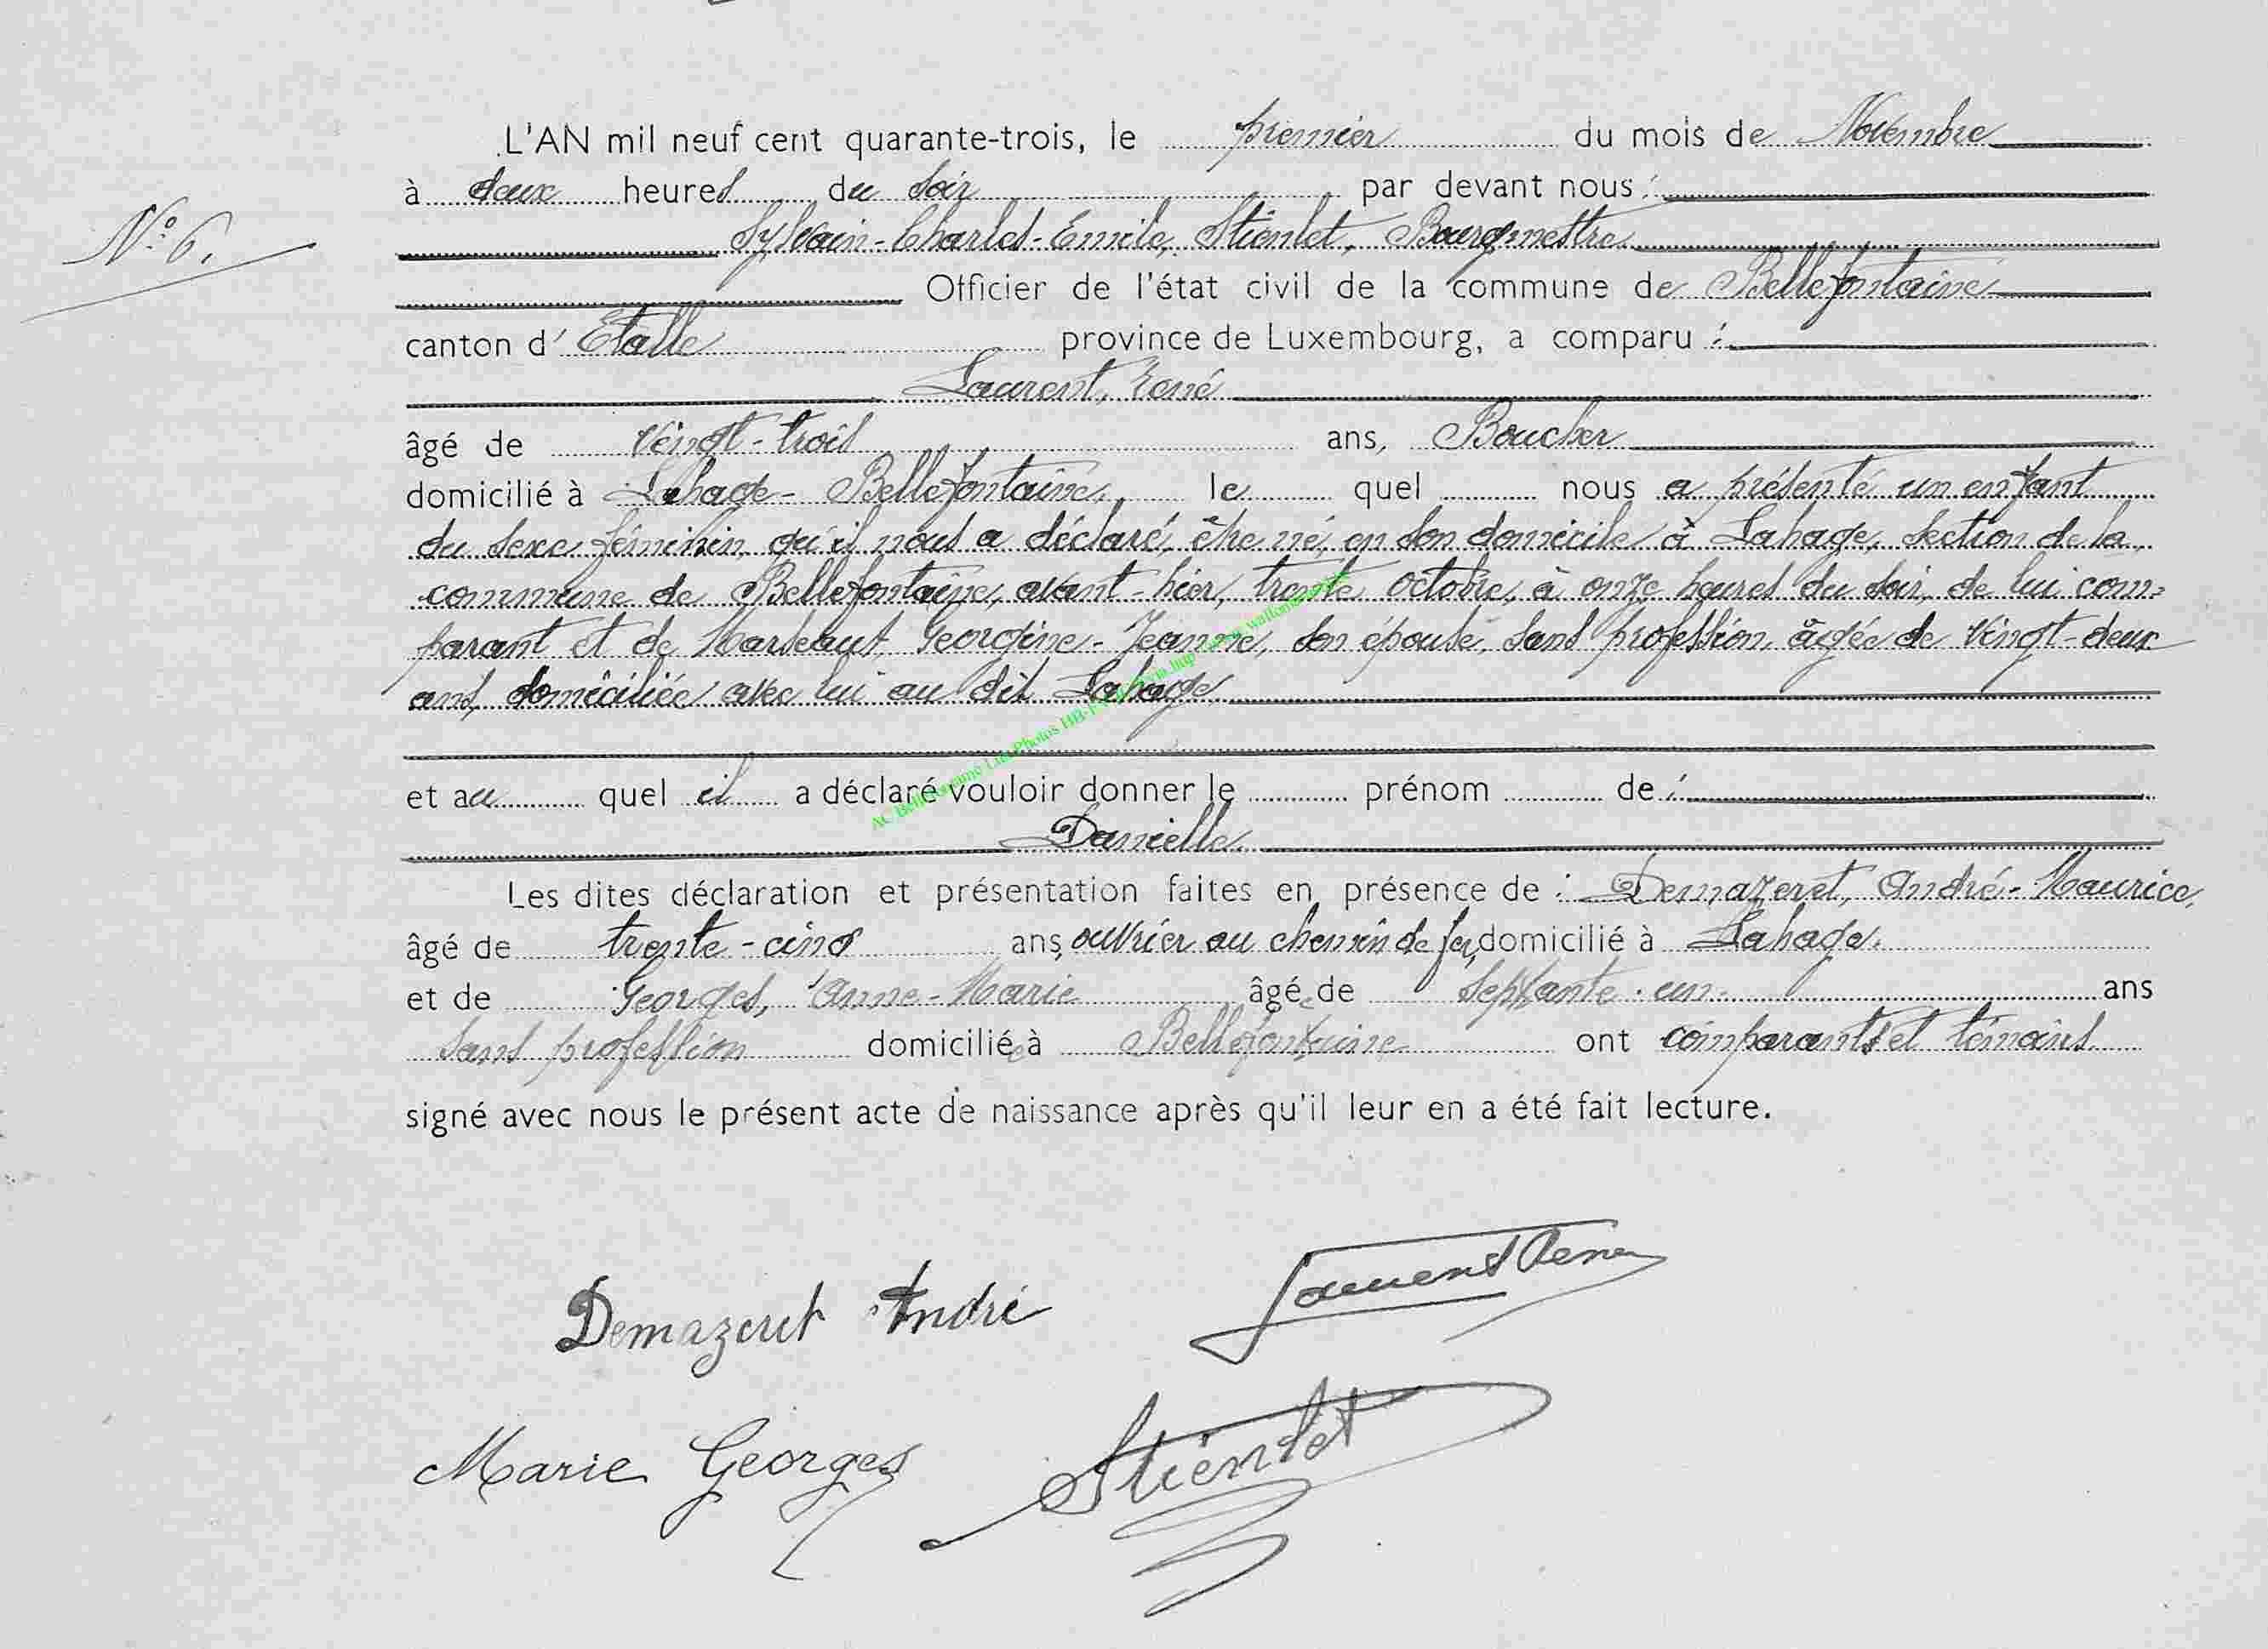 L'AN mil neuf cent quarante-trois, le premier du mois de Novembre
à deux heures du soir par devant nous :
N° 6.
Sylvain-Charles-Emile, Stiénlet, Bourgmestre
Officier de l'état civil de la commune de Bellefontaine
canton d' Etalle province de Luxembourg, a comparu :
Laurent, René
âgé de vingt-trois ans, Boucher
domicilié à Lahage - Bellefontaine, le quel nous a présenté un enfant
du sexe féminin, qu'il nous a déclaré, être né, en son domicile à Lahage, section de la
commune de Bellefontaine, avant-hier, trente octobre, à onze heures du soir, de lui com-
parant et de Georgine-Jeanne, son épouse, sans profession, âgée de vingt-deux
ans, domiciliée avec lui au dit Lahage
et au quel il a déclaré vouloir donner le prénom de :
Danielle
Les dites déclaration et présentation faites en présence de : Demazeret, André-Maurice,
âgé de trente-cinq ans, ouvrier au chemin de fer, domicilié à Lahage.
et de Georges, Anne-Marie âgée de septante-un ans
sans profession domiciliée à Bellefontaine ont comparants et témoins
signé avec nous le présent acte de naissance après qu'il leur en a été fait lecture.
Demazeret André
Laurent René
Marie Georges
Stiénlet